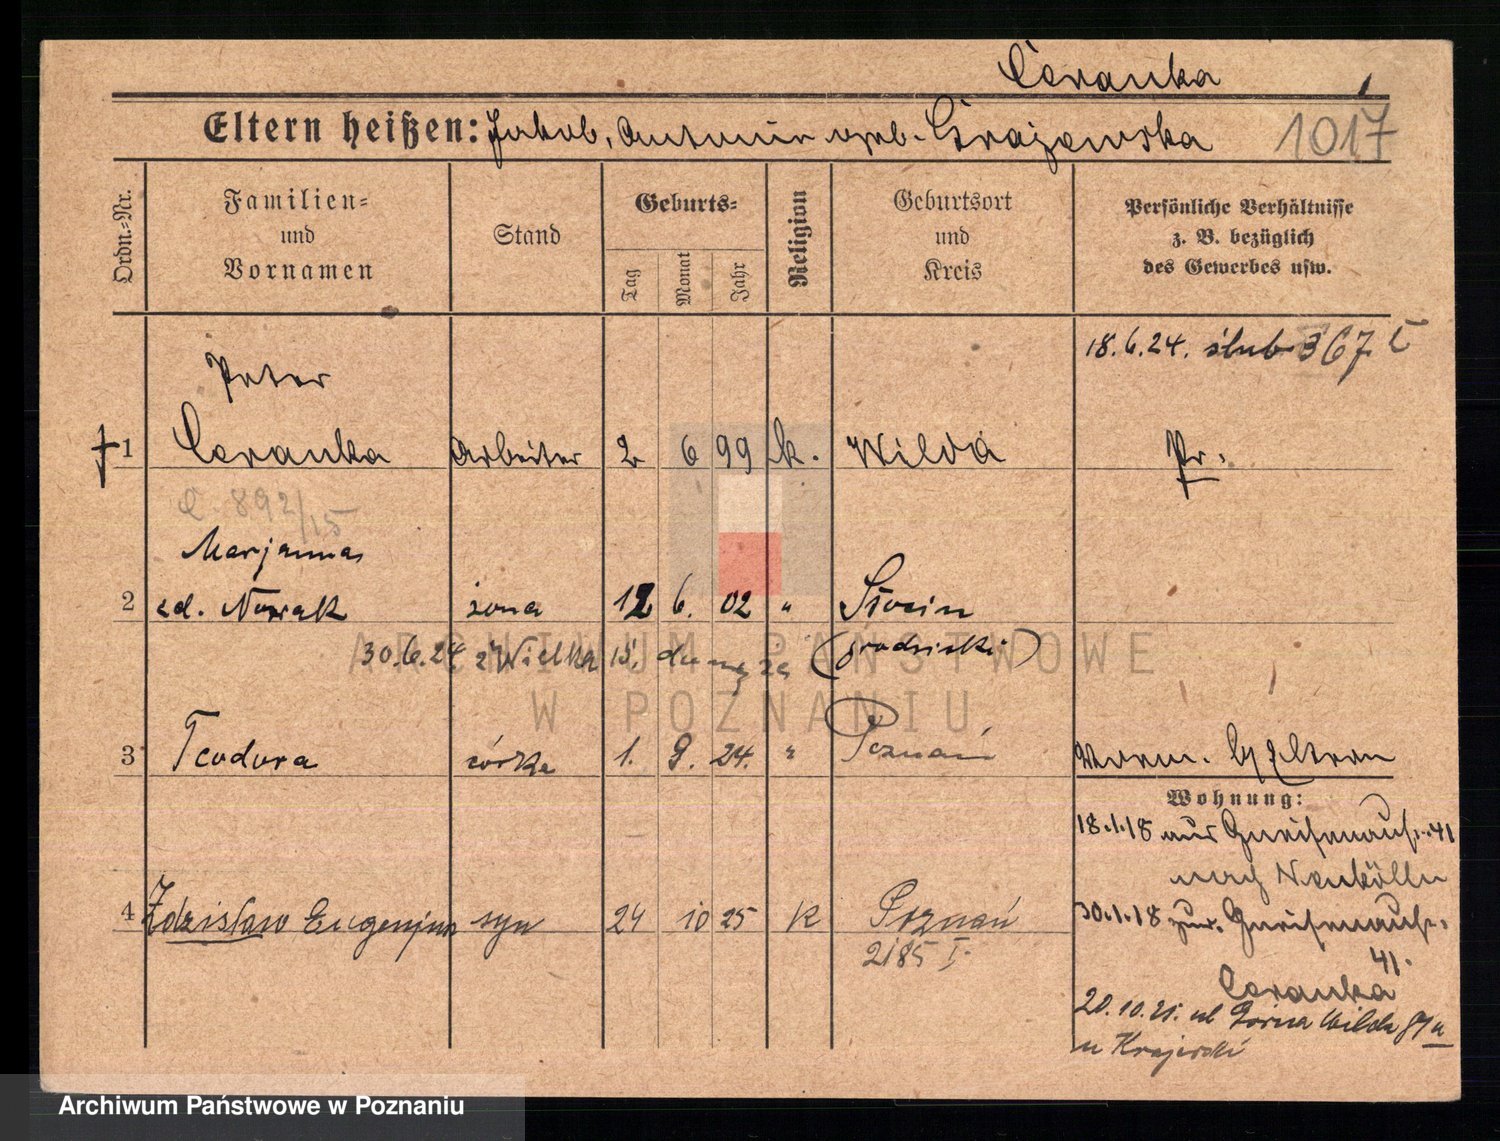 Ceranka
Eltern heißen: Jakob, Antonie geb. Grajewska 1017
Ordn.-Nr.
Familien-
und
Vornamen
Stand
Geburts-
Tag
Monat
Jahr
Religion
Geburtsort
und
Kreis
Persönliche Verhältnisse
z. B. bezüglich
des Gewerbes usw.
18.6.24. ślub 367
Peter
1 Ceranka Arbeiter 2 6 99 k. Wilda Pr.
C. 892/15
Marjanna
2 zd. Nowak żona 12 6. 02 " Słocin
30.6.24 z Wielka 15. do męża (grodziski)
3 Teodora córka 1. 9. 24. " Poznań Worm. b/ Eltern
Wohnung:
18.1.18 aus Gneisenaustr. 41
nach Neukölln
4 Zdzisław Eugenjusz syn 24 10 25 K Poznań
30.1.18 zur. Gneisenaustr.
41.
2185 I.
Ceranka
20.10.21. ul Górna Wilda 87
u Krajewski
ARCHIWUM PAŃSTWOWE
W POZNANIU
Archiwum Państwowe w Poznaniu